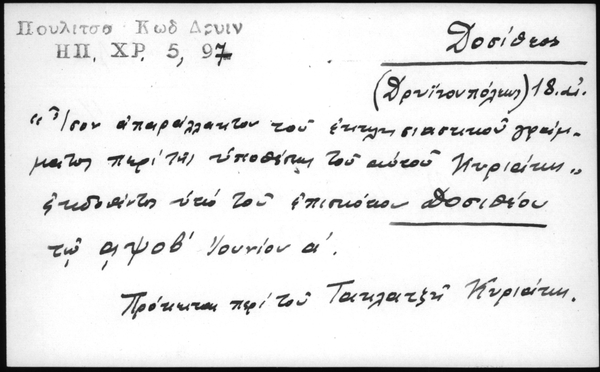 Πουλιτσα Κωδ Δρυιν
ΗΠ. ΧΡ. 5, 97
Δοσίθεος
(Δρυϊνουπόλεως) 18. αἰ.
"Ἴσον ἀπαράλλακτον τοῦ ἐκκλησιαστικοῦ γράμ-
ματος περὶ τῆς ὑποθέσεως τοῦ αὐτοῦ Κυριάκη"
ἐκδοθέντος ὑπὸ τοῦ ἐπισκόπου Δοσιθέου
τῷ ͵αψοβ' Ἰουνίου α'.
Πρόκειται περὶ τοῦ Τακλατζῆ Κυριάκη.